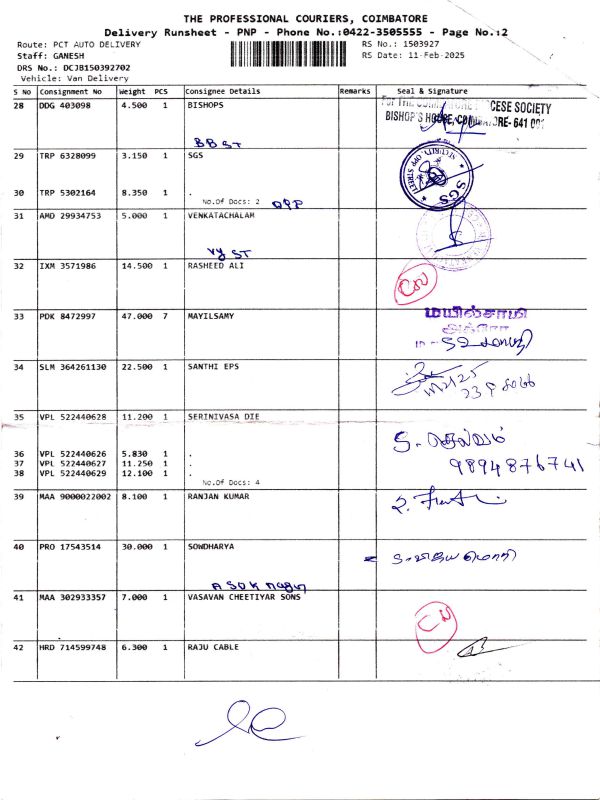 THE PROFESSIONAL COURIERS, COIMBATORE
Delivery Runsheet - PNP - Phone No.:0422-3505555 - Page No.:2
Route: PCT AUTO DELIVERY RS No.: 1503927
Staff: GANESH RS Date: 11-Feb-2025
DRS No.: DCJB150392702
Vehicle: Van Delivery
S No Consignment No Weight PCS Consignee Details Remarks Seal & Signature
28 DDG 403098 4.500 1 BISHOPS
BISHOP'S HOUSE, COIMBATORE- 641 001
BB ST
29 TRP 6328099 3.150 1 SGS
SGS
30 TRP 5302164 8.350 1 .
No.Of Docs: 2 OPP
31 AMD 29934753 5.000 1 VENKATACHALAM
VY ST
32 IXM 3571986 14.500 1 RASHEED ALI
33 PDK 8472997 47.000 7 MAYILSAMY மயில்சாமி
34 SLM 364261130 22.500 1 SANTHI EPS
35 VPL 522440628 11.200 1 SERINIVASA DIE
S. செல்வம்
9894876741
36 VPL 522440626 5.830 1 .
37 VPL 522440627 11.250 1 .
38 VPL 522440629 12.100 1 .
No.Of Docs: 4
39 MAA 9000022002 8.100 1 RANJAN KUMAR
40 PRO 17543514 30.000 1 SOWDHARYA
41 MAA 302933357 7.000 1 VASAVAN CHEETIYAR SONS
42 HRD 714599748 6.300 1 RAJU CABLE